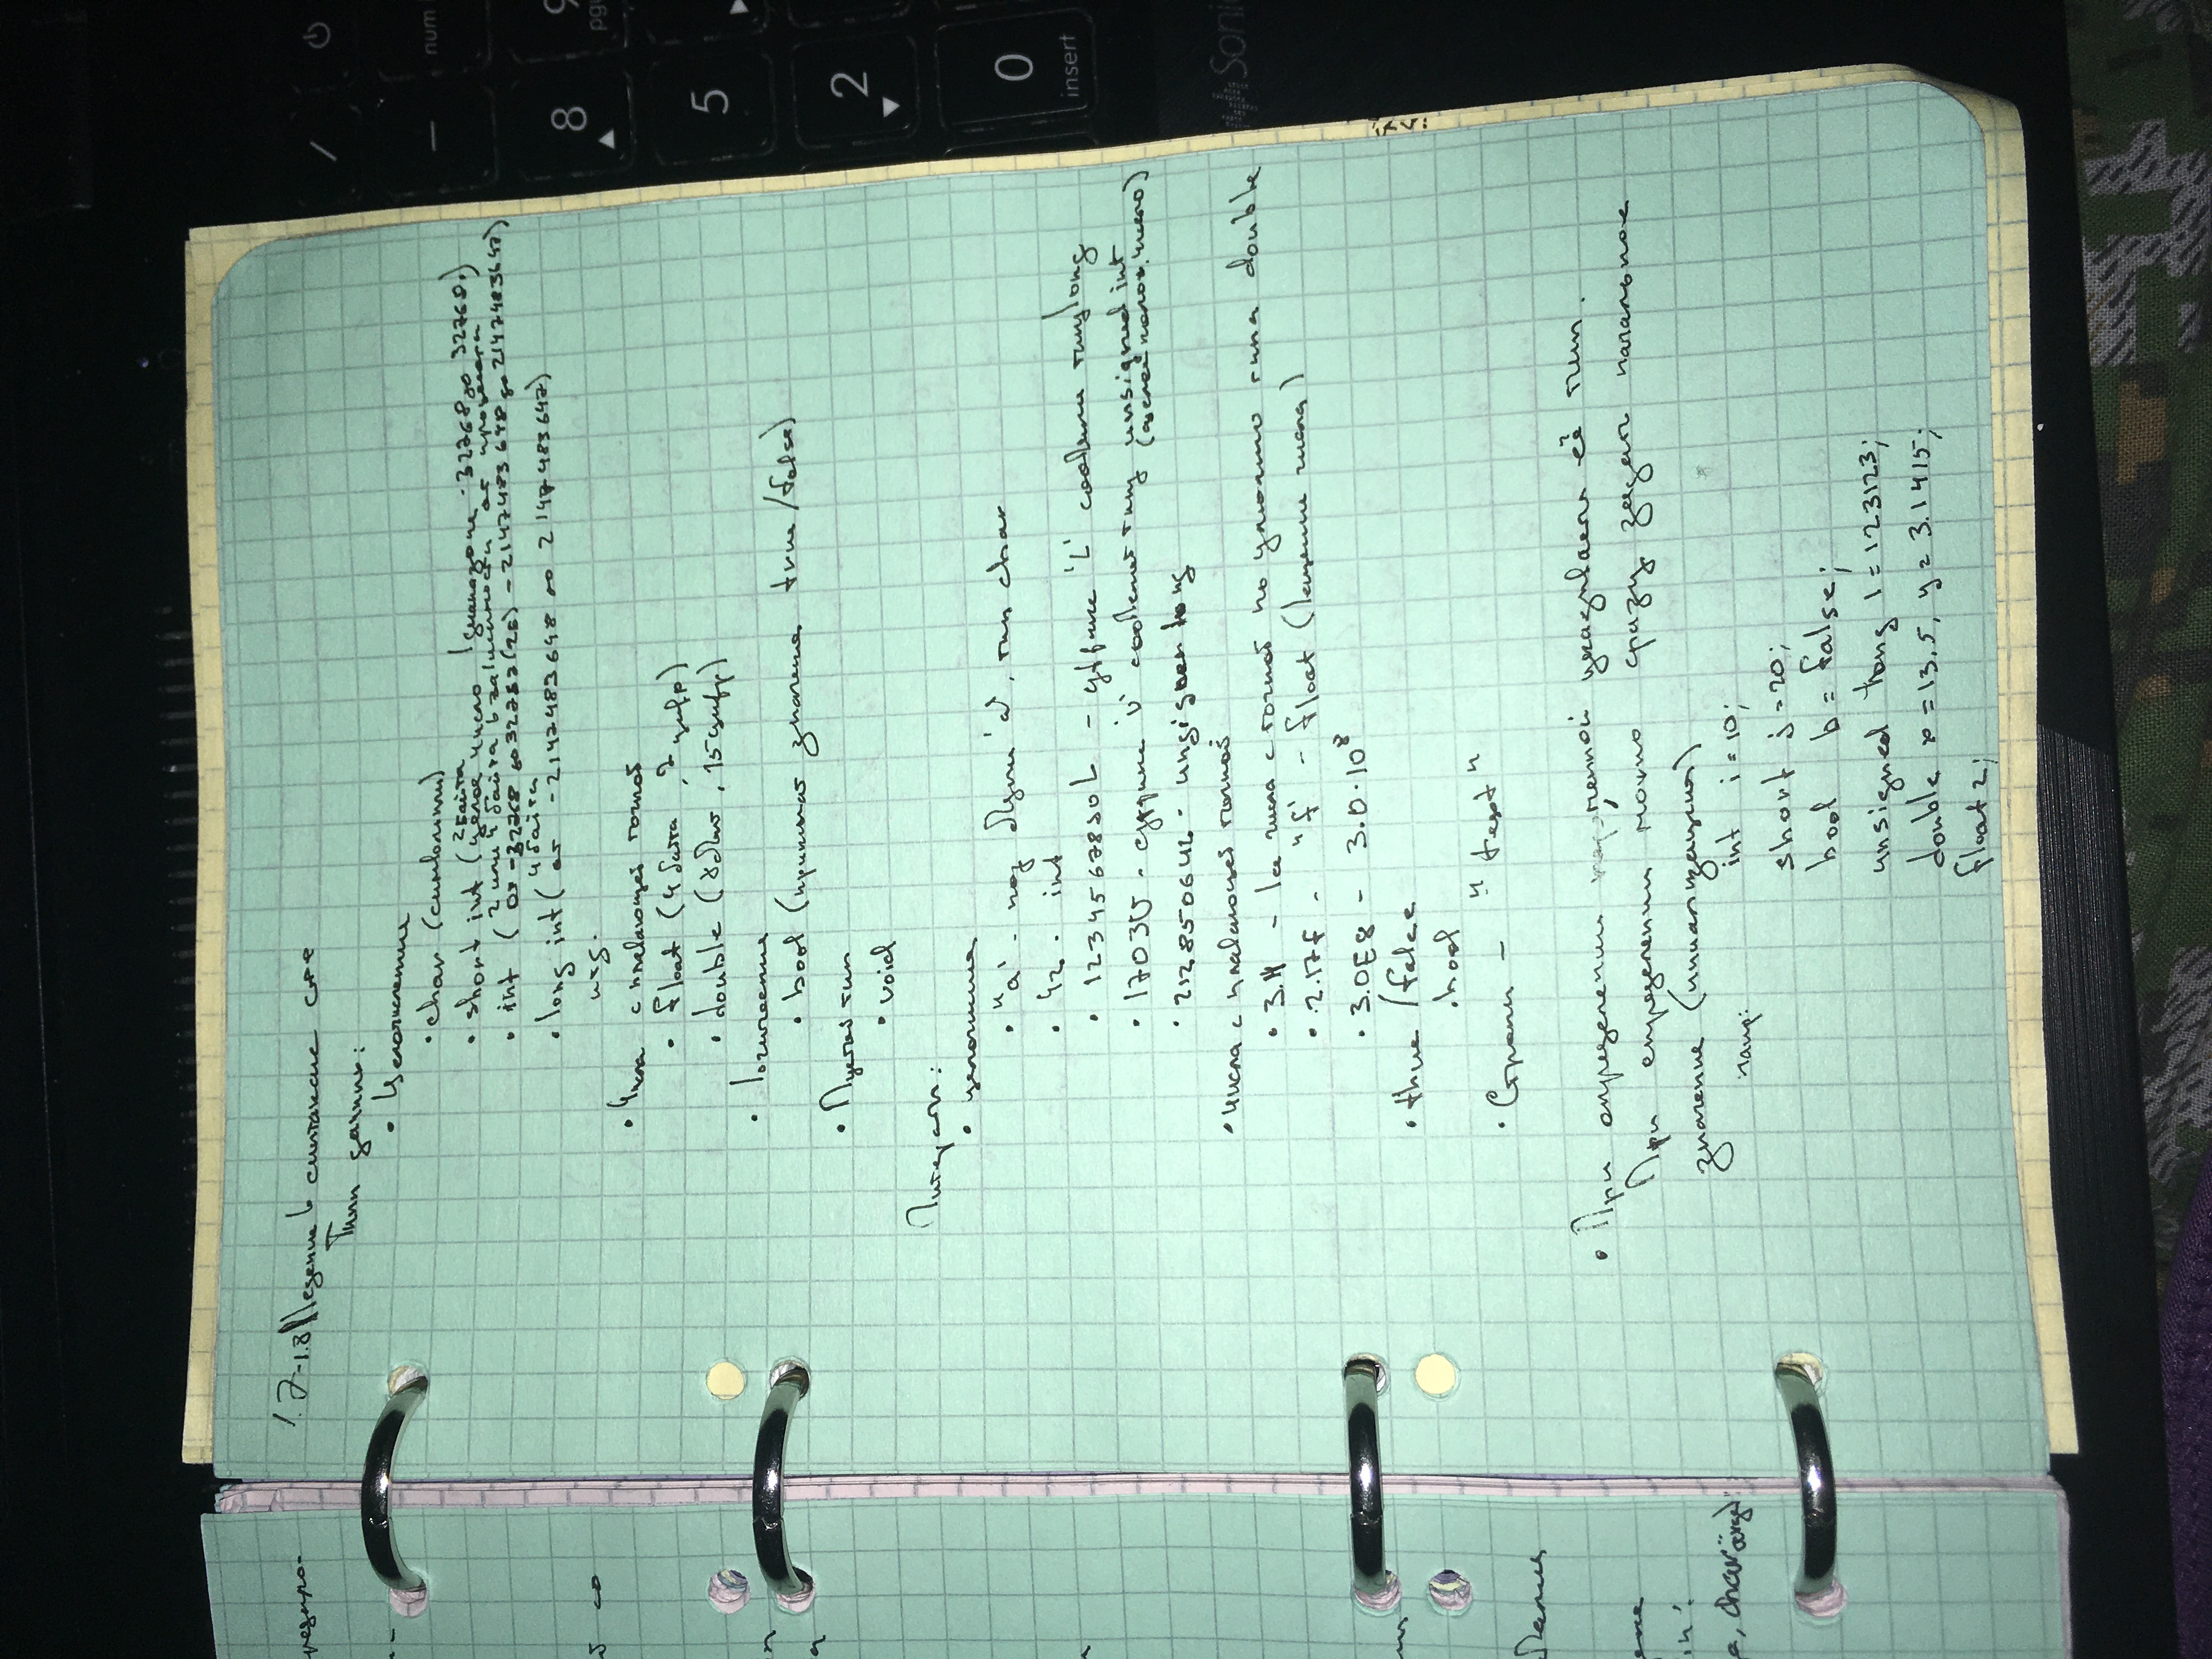 1.7-1.8 Введение в синтаксис cpp
Типы данных:
• Целочисленные
• char (символьный)
2 байта
• short int (целое число в диапазоне -32768 до 32768.)
2 или 4 байта в зависимости от
• int (от -32768 до 32767(2б) -2147483648 до 2147483647)
4 байта
• long int (от -2147483648 до 2147483647)
итд.
• Числа с плавающей точкой
• float (4 байта, 7 цифр)
• double (8 байт, 15 цифр)
• Логические
• bool (принимает значения true/false)
• Пустой тип
• void
Литералы:
•
• "a' - код буквы 'a', тип char
• 42 - int
• 1234567890L - суффикс 'L' тип long
• 1703U - суффикс 'U' типу unsigned int
(целое полож. число)
• unsigned long
• числа с плавающей точкой
• 3.14 - все числа с точкой по умолч типа double
• 2.17f - "f' - float (вещенные числа)
• 3.0E8 - 3.0·10⁸
• true /false
• bool
• Строки - "text"
• При определении переменной указываем её тип.
При определении можно сразу задать начальное
значение (инициализация)
напр: int i = 10;
short j = 20;
bool b = false;
unsigned long l = 123123;
double x = 13.5, y = 3.1415;
float z;
8
9
5
2
0
insert
num
pg
Soni
in'.
char